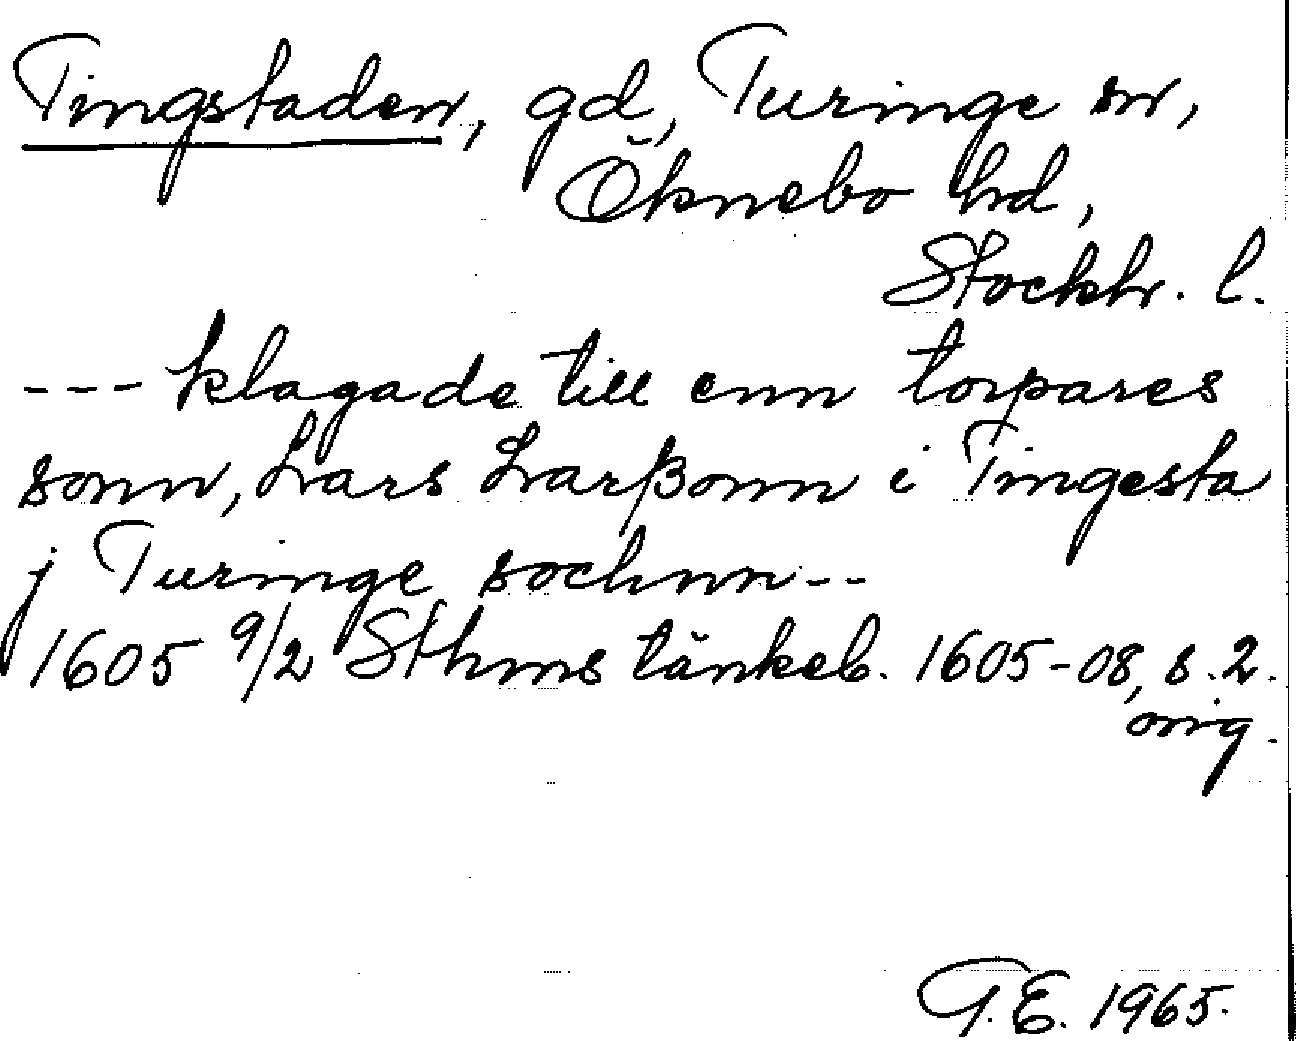 Tingstaden, gd, Turinge sn,
Öknebo hd,
Stockh. l.
--- klagade till enn torpares
sonn, Lars Larßonn i Tingesta
j Turinge sochnn--
1605 9/2 Sthms tänkeb. 1605-08, s. 2.
orig.
G.E. 1965.